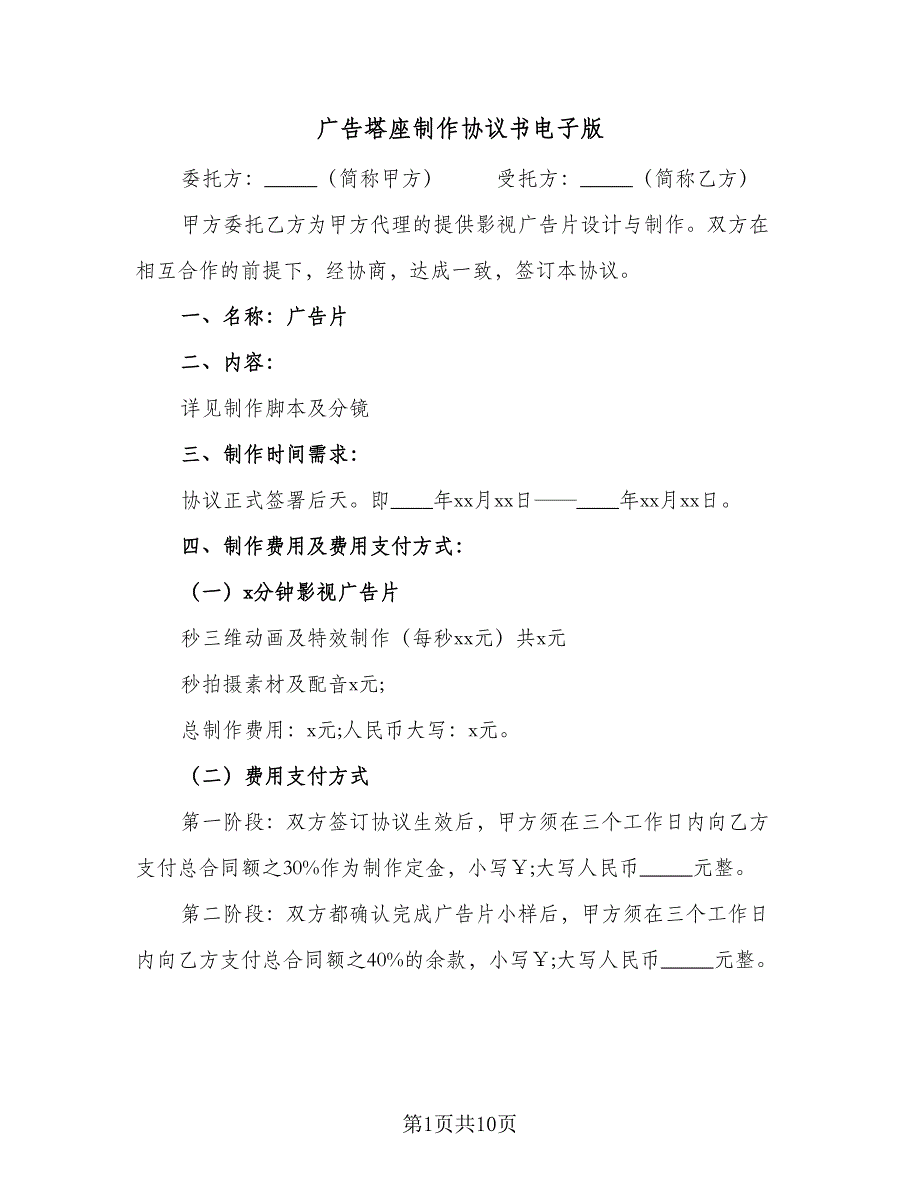 广告塔座制作协议书电子版
委托方：_____（简称甲方） 受托方：_____（简称乙方）
甲方委托乙方为甲方代理的提供影视广告片设计与制作。双方在
相互合作的前提下，经协商，达成一致，签订本协议。
一、名称：广告片
二、内容：
详见制作脚本及分镜
三、制作时间需求：
协议正式签署后天。即____年xx月xx日——____年xx月xx日。
四、制作费用及费用支付方式：
（一）x分钟影视广告片
秒三维动画及特效制作（每秒xx元）共x元
秒拍摄素材及配音x元;
总制作费用：x元;人民币大写：x元。
（二）费用支付方式
第一阶段：双方签订协议生效后，甲方须在三个工作日内向乙方
支付总合同额之30%作为制作定金，小写￥;大写人民币_____元整。
第二阶段：双方都确认完成广告片小样后，甲方须在三个工作日
内向乙方支付总合同额之40%的余款，小写￥;大写人民币_____元整。
第1页共10页